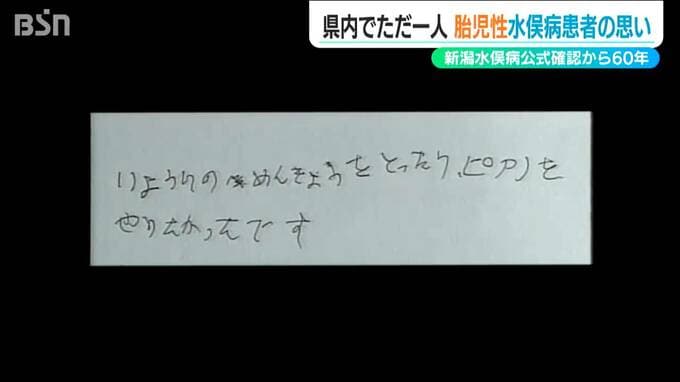 BSN
県内でただ一人 胎児性水俣病患者の思い
新潟水俣病公式確認から60年
りょうりの めんきょうをとったり、ピアノを
やりたかったんです